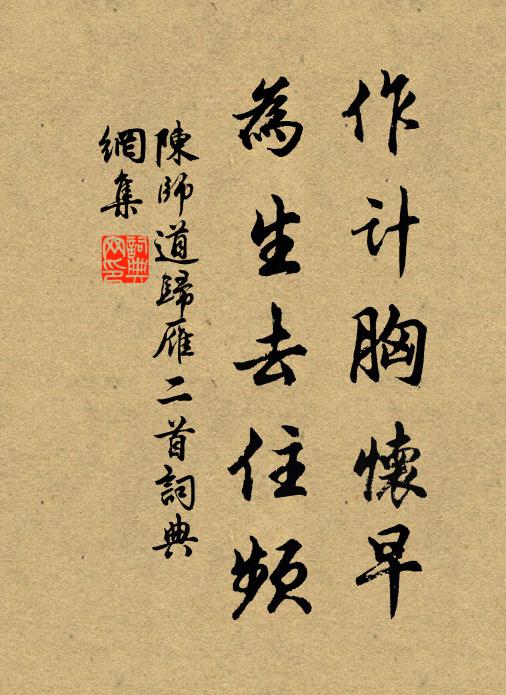 作计胸懷早
為生去住頻
陳師道歸雁二首詞典
網集
詞典
网印